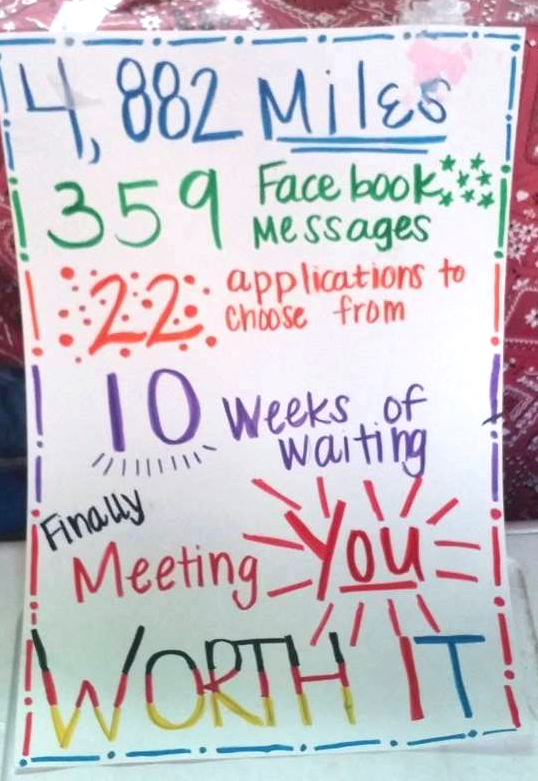 4,882 Miles
359 Facebook
Messages
22 applications to
choose from
10 Weeks of
waiting
Finally
Meeting You
WORTH IT